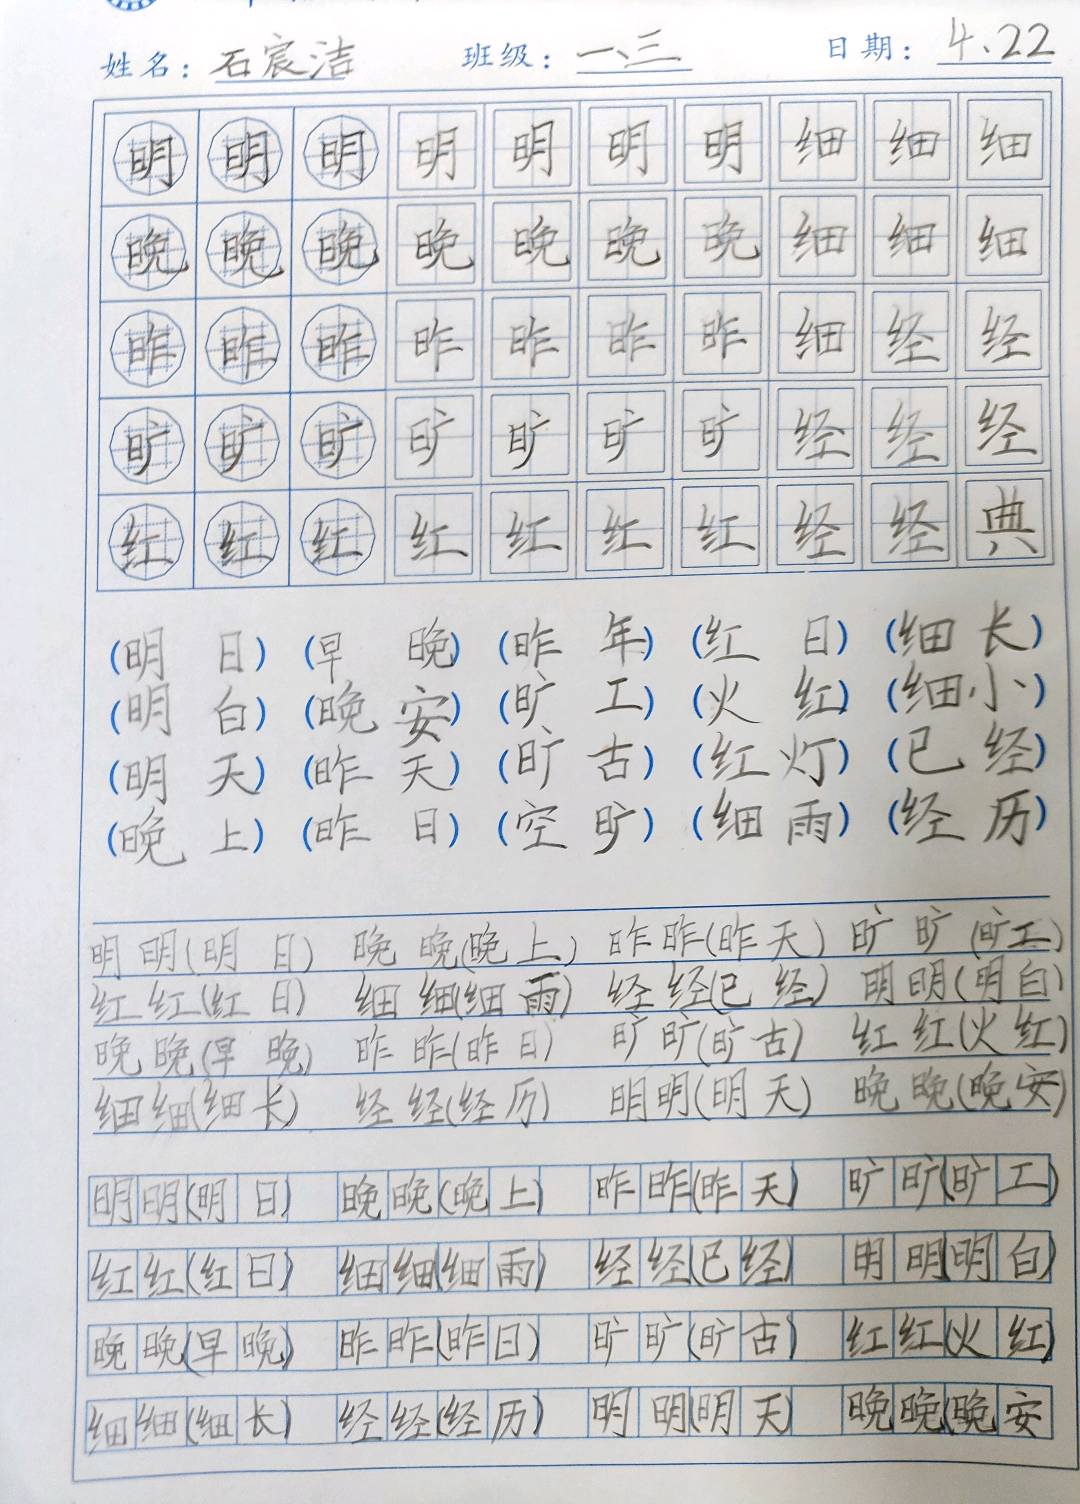 姓名：石宸洁 班级：一、三 日期：4、22
明 明 明 明 明 明 明 细 细 细
晚 晚 晚 晚 晚 晚 晚 细 细 细
昨 昨 昨 昨 昨 昨 昨 细 经 经
旷 旷 旷 旷 旷 旷 旷 经 经 经
红 红 红 红 红 红 红 经 经 典
(明日) (早晚) (昨年) (红日) (细长)
(明白) (晚安) (旷工) (火红) (细小)
(明天) (昨天) (旷古) (红灯) (已经)
(晚上) (昨日) (空旷) (细雨) (经历)
明明(明日) 晚晚(晚上) 昨昨(昨天) 旷旷(旷工)
红红(红日) 细细(细雨) 经经(已经) 明明(明白)
晚晚(早晚) 昨昨(昨日) 旷旷(旷古) 红红(火红)
细细(细长) 经经(经历) 明明(明天) 晚晚(晚安)
明明(明日) 晚晚(晚上) 昨昨(昨天) 旷旷(旷工)
红红(红日) 细细(细雨) 经经(已经) 明明(明白)
晚晚(早晚) 昨昨(昨日) 旷旷(旷古) 红红(火红)
细细(细长) 经经(经历) 明明(明天) 晚晚(晚安)